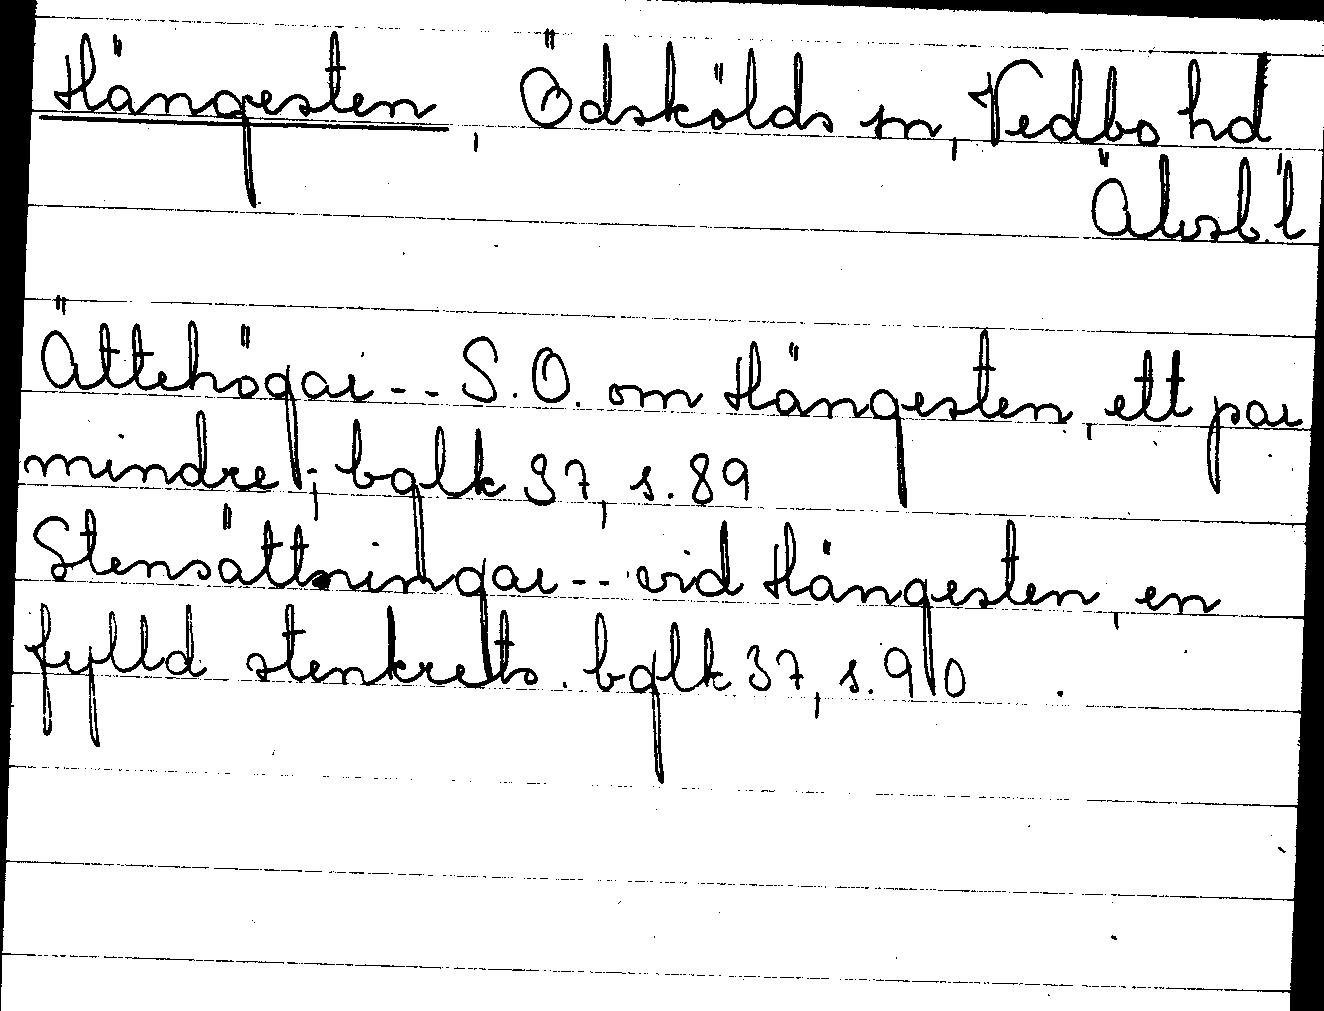 Hängesten, Ödskölds sn, Vedbo hd
Älvsb. l
Ättehögar - - S.O. om Hängesten, ett par
mindre; bglk 37, s. 89
Stensättningar - - vid Hängesten, en
fylld stenkrets. bglk 37, s. 90.